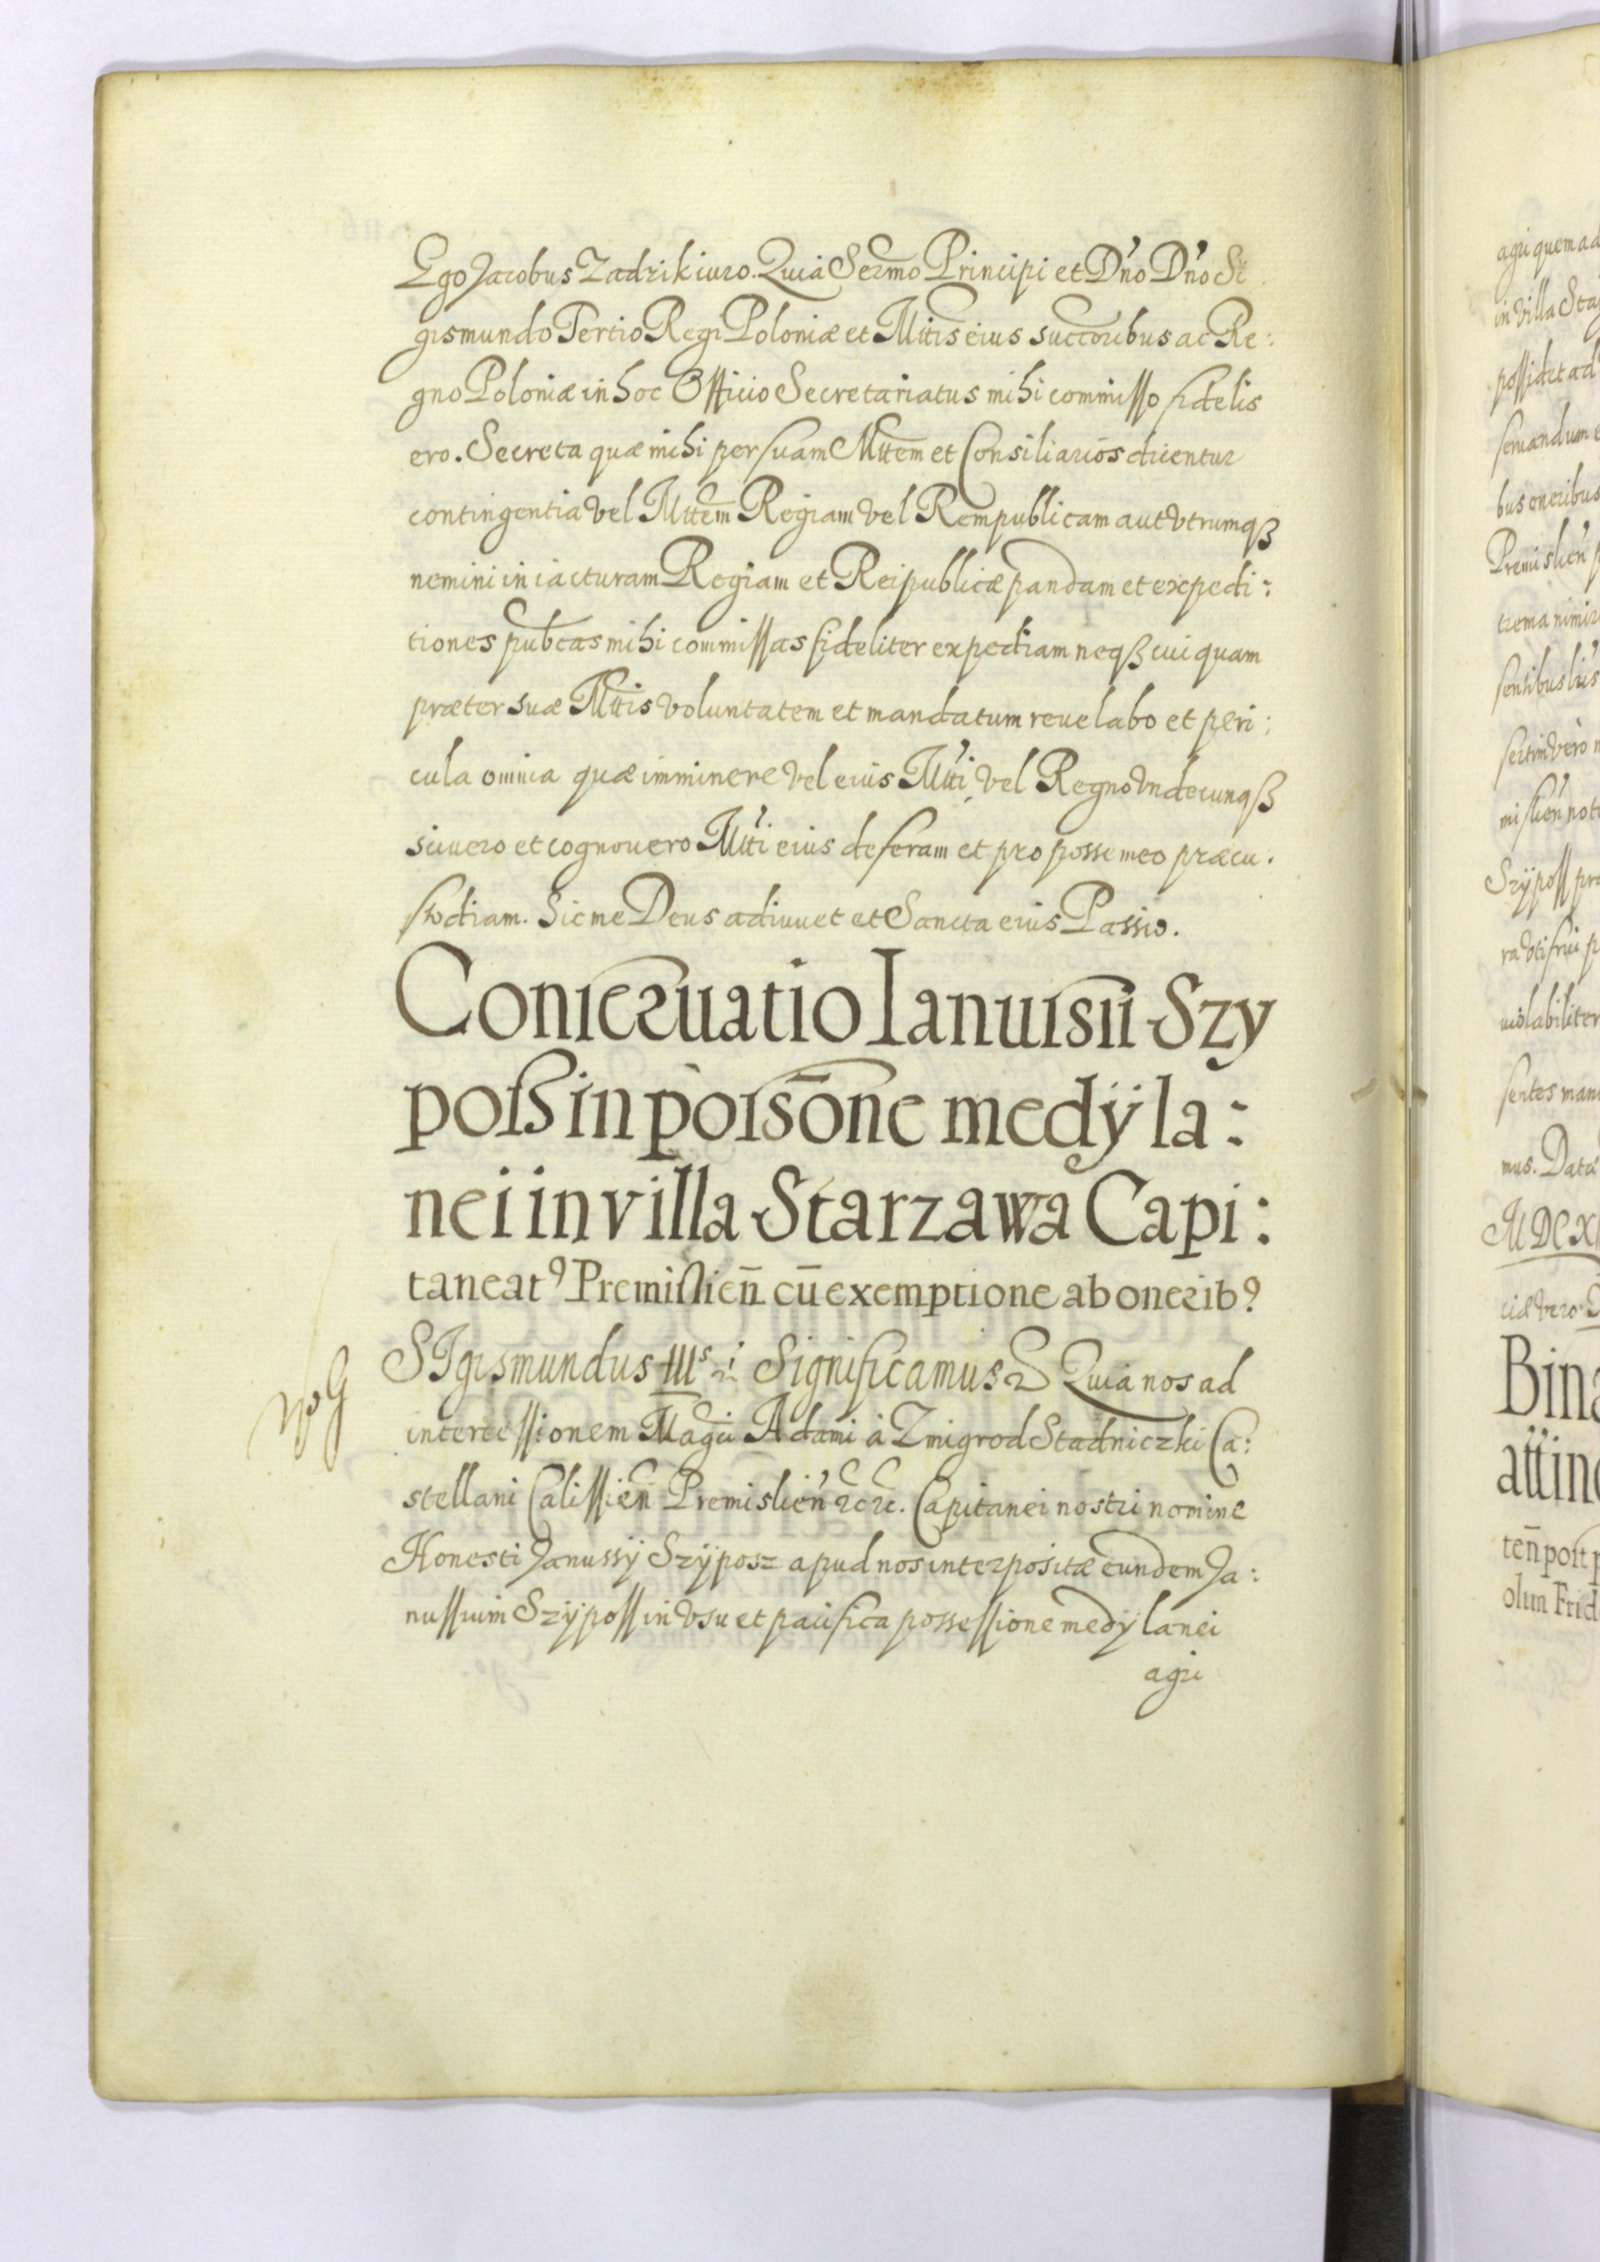 Ego Jacobus Zadzik iuro. Quia Sermo Principi et D'no D'no Si
gismundo Tertio Regi Poloniæ et Mttis eius succoribus ac Re:
gno Poloniæ in hoc Officio Secretariatus mihi commisso fidelis
ero. Secreta quæ mihi per suam Mttem et Consiliarios dicentur
contingentia vel Mttem Regiam vel Rempublicam aut vtrumqß
nemini in iacturam Regiam et Reipublicæ pandam et expedi:
tiones pubcas mihi commissas fideliter expediam neqß cui quam
præter suæ Mttis voluntatem et mandatum reuelabo et peri:
cula omnia quæ imminere vel eius Mtti vel Regno vndecunqß
sciuero et cognouero Mtti eius deferam et pro posse meo præcu.
stodiam. Sic me Deus adiuuet et Sancta eius Passio.
Conseruatio Ianussii Szy
poß in possōne medÿ la:
nei in villa Starzawa Capi:
taneat9 Premislien̄ cū exemptione ab onerib9
SIgismundus IIIs Significamus Quia nos ad
intercessionem Magci Adami à Zmigrod Stadniczki Ca:
stellani Calissien̄ Premislien' &c &c. Capitanei nostri nomine
Honesti Janussÿ Szÿposz apud nos interpositæ eundem Ja:
nussium Szÿposs in vsu et pacifica possessione medÿ lanei
agri
agri quem ad
in villa Sta
possidet ad
seruandum e
bus oneribus
Premislien' p
sentibus
mislien' not
Szÿposs pr
ra vti frui p
uiolabiliter
sentes man
mus. Datæ
Bina
attin
ten̄ post p
olim Frid